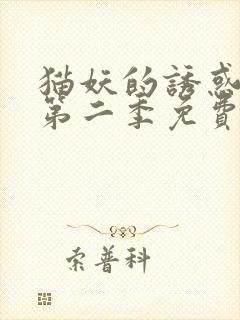 猫妖的誘惑
第二季免費
索普科